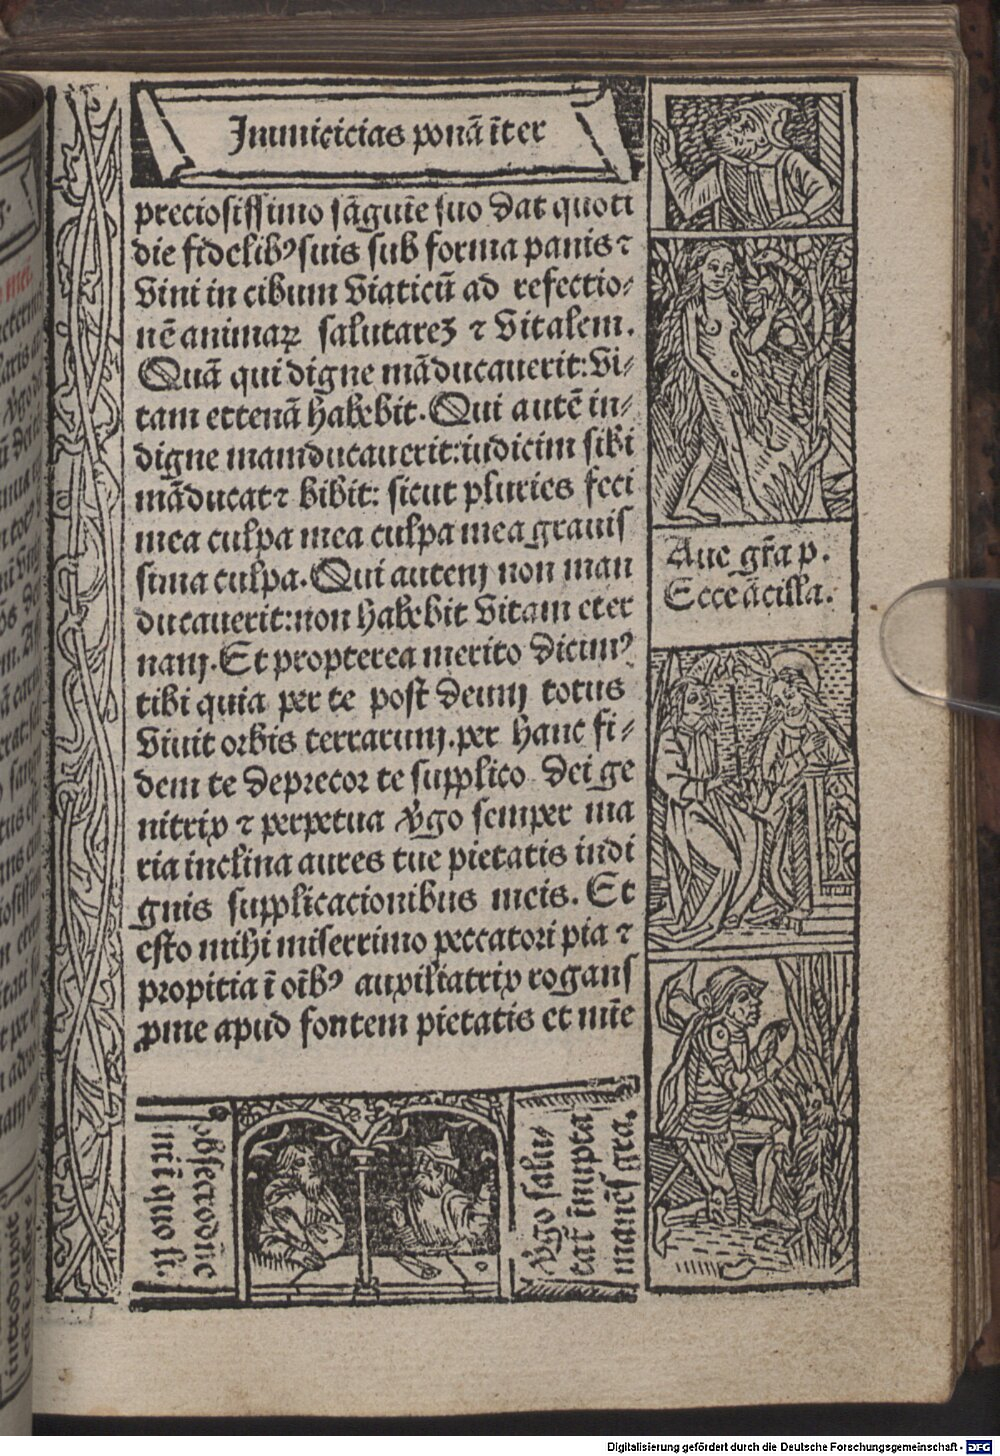 Inimicicias ponā īter
preciosissimo sāguīe suo dat quoti
die fidelibꝰ suis sub forma panis ⁊
vini in cibum viaticū ad refectio⸗
nē animaꝝ salutareʒ ⁊ vitalem.
Quā qui digne māducauerit: vi⸗
tam eternā habebit. Qui autē in⸗
digne manducauerit: iudicim sibi
māducat ⁊ bibit: sicut pluries feci
mea culpa mea culpa mea grauis
sima culpa. Qui autem non man
ducauerit: non habebit vitam eter
nam. Et propterea merito dicimꝰ
tibi quia per te post deum totus
viuit orbis terrarum. per hanc fi⸗
dem te deprecor te supplico dei ge
nitrix ⁊ perpetua v̓go semper ma
ria inclina aures tue pietatis indi
gnis supplicacionibus meis. Et
esto mihi miserrimo peccatori pia ⁊
propitia ī oībꝰ auxiliatrix rogans
ꝓ me apud fontem pietatis et mīe
Aue gr̄a p.
Ecce ācilla.
v̓go salu⸗
tat̄ īnupta
manēs gra.